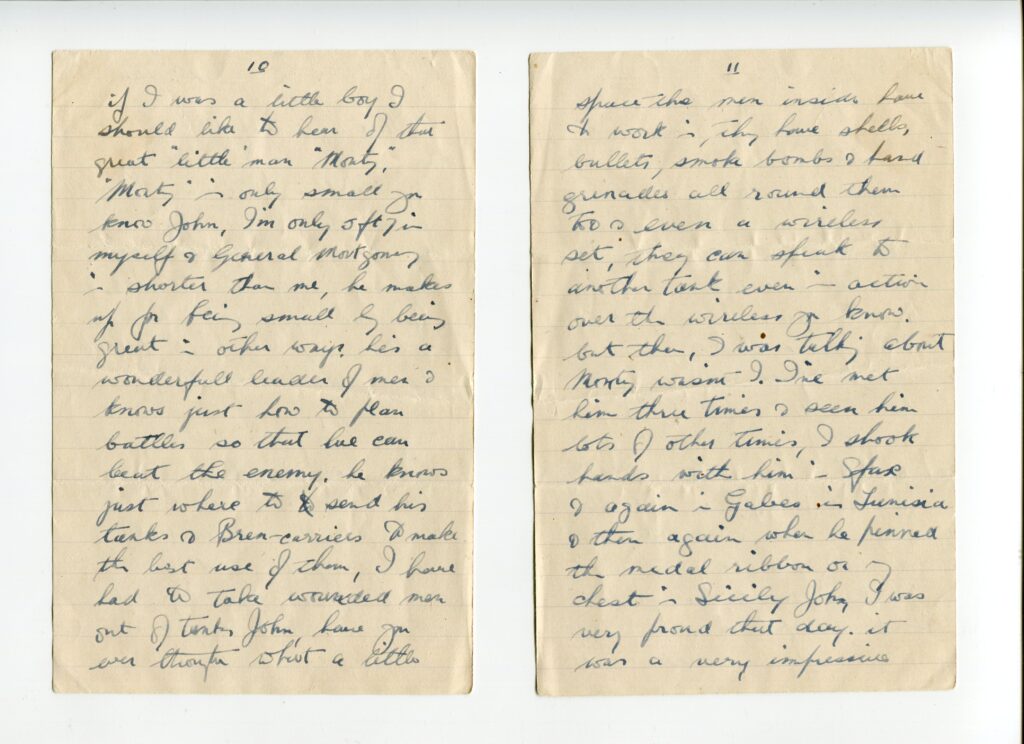 10
if I was a little boy I
should like to hear of that
great "little" man "Monty",
"Monty" is only small you
know John, I'm only 5ft 7in
myself & General Montgomery
is shorter than me, he makes
up for being small by being
great in other ways. he's a
wonderfull leader of men &
knows just how to plan
battles so that we can
beat the enemy. he knows
just where to send his
tanks & Bren-carriers to make
the best use of them, I have
had to take wounded men
out of tanks John, have you
ever thought what a little
11
space the men inside have
to work in, they have shells,
bullets, smoke bombs & hand
grenades all round them
too & even a wireless
set, they can speak to
another tank even in action
over the wireless you know.
but then, I was talking about
Monty wasnt I. I've met
him three times & seen him
lots of other times, I shook
hands with him in Sfax
& again in Gabes in Tunisia
& then again when he pinned
the medal ribbon on my
chest in Sicily John, I was
very proud that day. it
was a very impressive